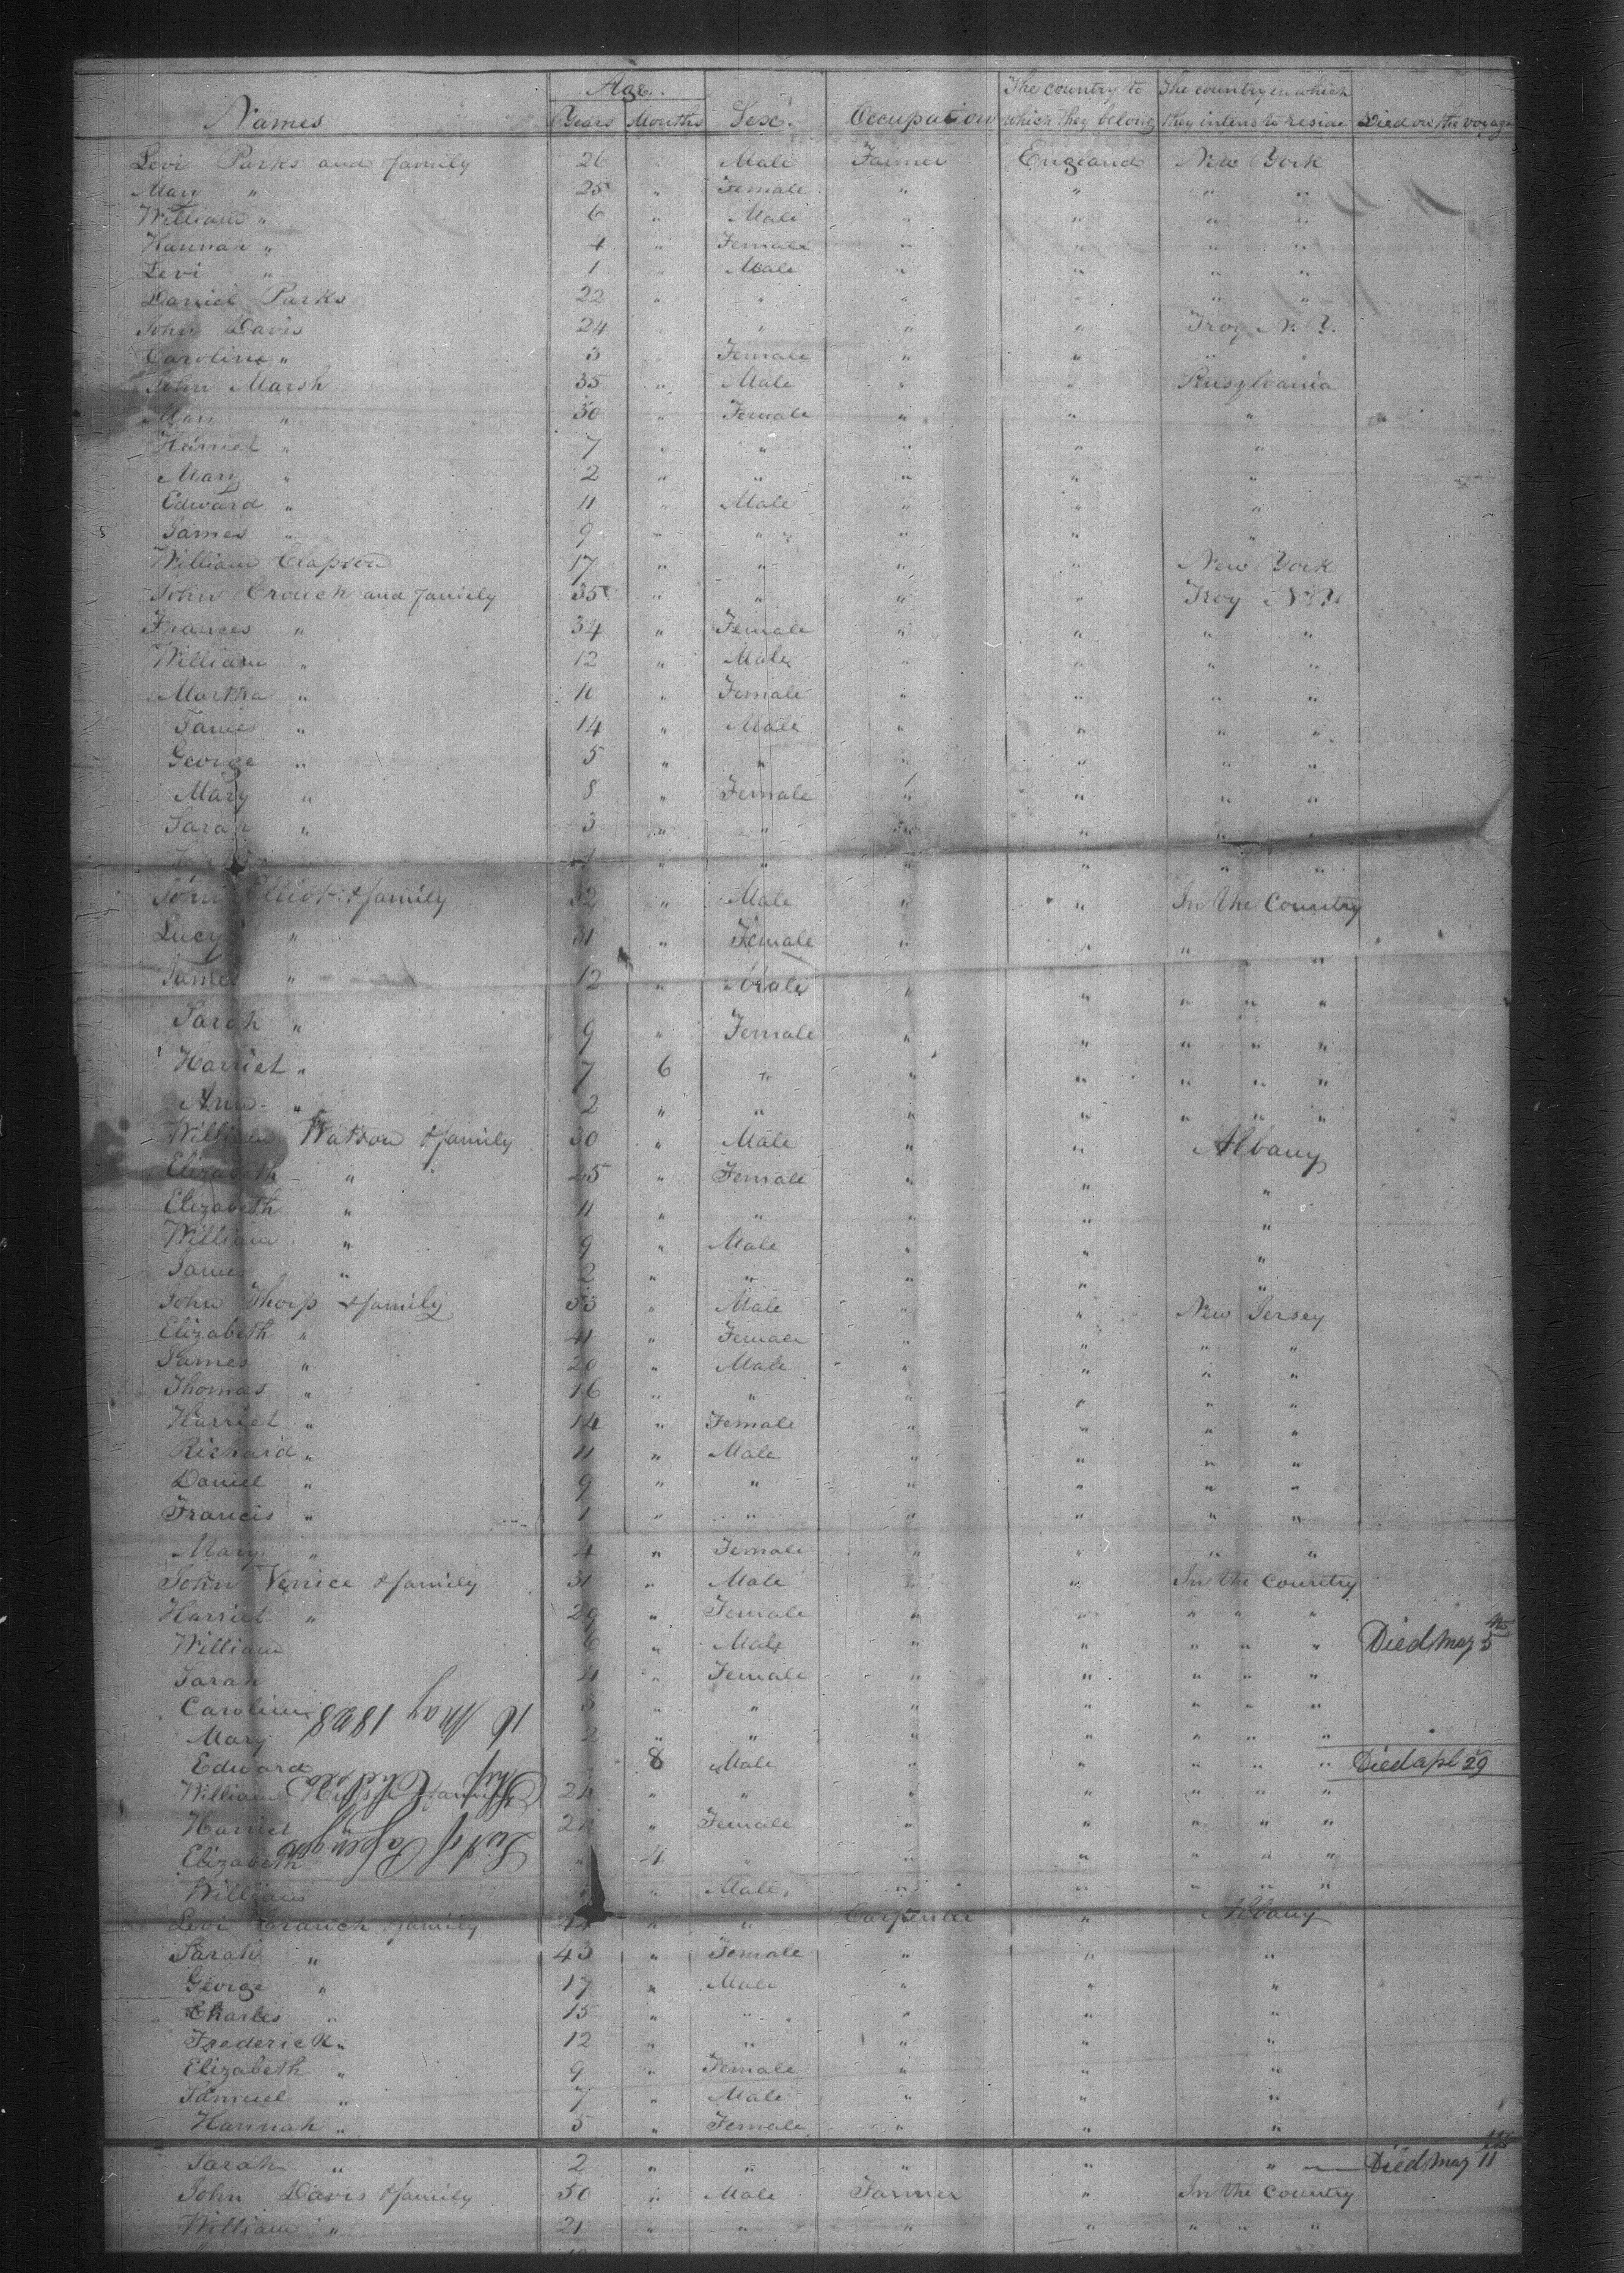 Names Age. Years Months Sex. Occupation The country to which they belong The country in which they intend to reside Died on the voyage
Levi Parks and family 26 " Male Farmer England New York
Mary " 25 " Female " " " "
William " 6 " Male " " " "
Hannah " 4 " Female " " " "
Levi " 1 " Male " " " "
Daniel Parks 22 " " " " " "
John Davis 24 " " " " Troy N. Y.
Caroline " 3 " Female " " " "
John Marsh 35 " Male " " Pensylvania
Mary " 30 " Female " " "
Harriet " 7 " " " " "
Mary " 2 " " " " "
Edward " 11 " Male " " "
James " 9 " " " " "
William Clapson 17 " " " " New York
John Crouch and family 35 " " " " Troy N.Y.
Frances " 34 " Female " " " "
William " 12 " Male " " " "
Martha " 10 " Female " " " "
James " 14 " Male " " " "
George " 5 " " " " " "
Mary " 8 " Female " " " "
Sarah " 3 " " " " " "
" " " " " "
John Elliot & family 32 " Male " " In the Country
Lucy " 31 " Female " " " "
James " 12 " Male " " " " "
Sarah " 9 " Female " " " " "
Harriet " 7 6 " " " " " "
Ann " 2 " " " " " " "
William Watson & family 30 " Male " " Albany
Elizabeth " 25 " Female " " "
Elizabeth " 11 " " " " "
William " 9 " Male " " "
James " 2 " " " " "
John Thorp & family 53 " Male " " New Jersey
Elizabeth " 41 " Female " " " "
James " 20 " Male " " " "
Thomas " 16 " " " " " "
Harriet " 14 " Female " " " "
Richard " 11 " Male " " " "
Daniel " 9 " " " " " "
Francis " 1 " " " " " "
Mary " 4 " Female " " " "
John Venice & family 31 " Male " " In the Country
Harriet " 29 " Female " " " " "
William 6 " Male " " " " " Died May 5th
Sarah 4 " Female " " " " "
Caroline 3 " " " " " " "
16 May 1828
Mary 2 " " " " " " "
Edward 8 Male " " " " " Died apl 29
William & family 24 " " " " " " "
Ship
Harriet " Female " " " " "
List of Passengers
Elizabeth " 4 " " " " " "
William " Male " " " " "
Levi Crouch & family 44 " " Carpenter " Albany
Sarah " 43 " Female " " "
George " 17 " Male " " "
Charles " 15 " " " " "
Frederick " 12 " " " " "
Elizabeth " 9 " Female " " "
Samuel " 7 " Male " " "
Hannah " 5 " Female " " "
Sarah " 2 " " " " " Died May 11th
John Davis & family 50 " Male Farmer " In the Country
William " 21 " " " " " " "